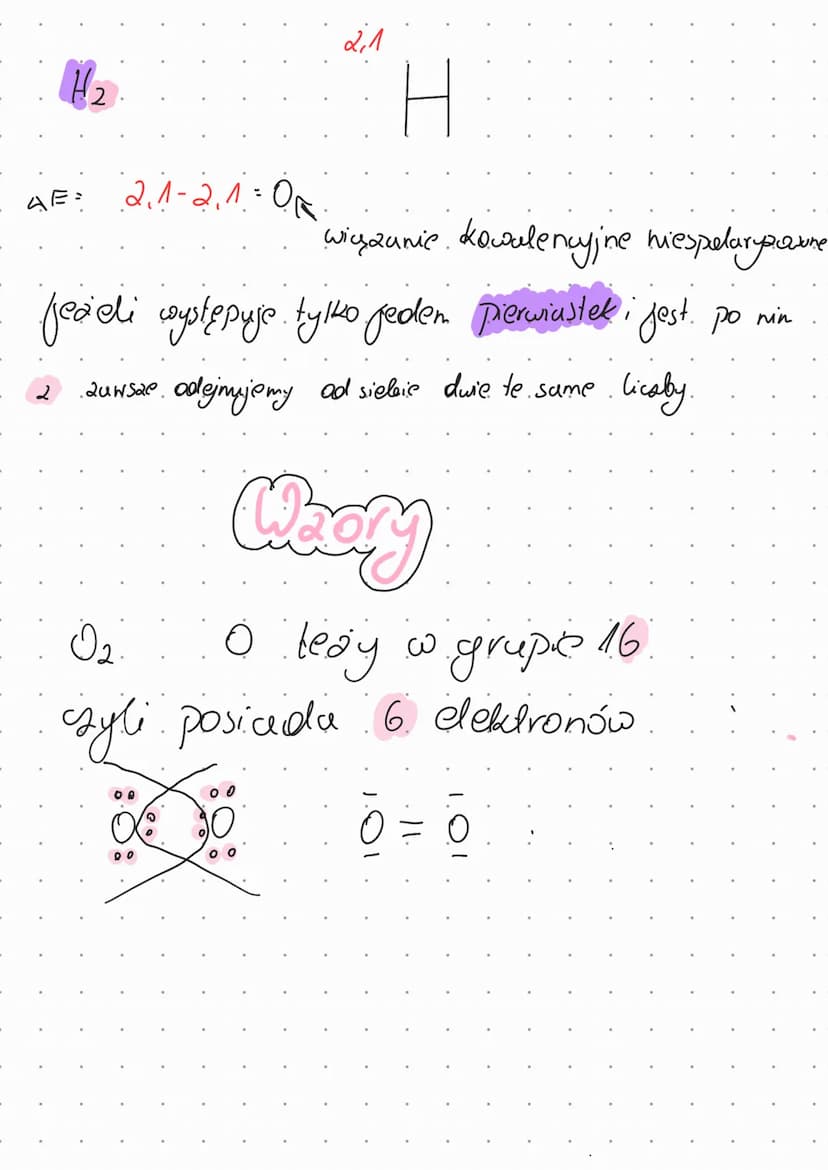 2,1
H₂ H
ΔE= 2,1-2,1=0
wiązanie kowalencyjne niespolaryzowane
jeżeli występuje tylko jeden pierwiastek i jest po nim
2 zawsze odejmujemy od siebie dwie te same liczby.
Wzory
O₂ O leży w grupie 16
czyli posiada 6 elektronów
O O O = O